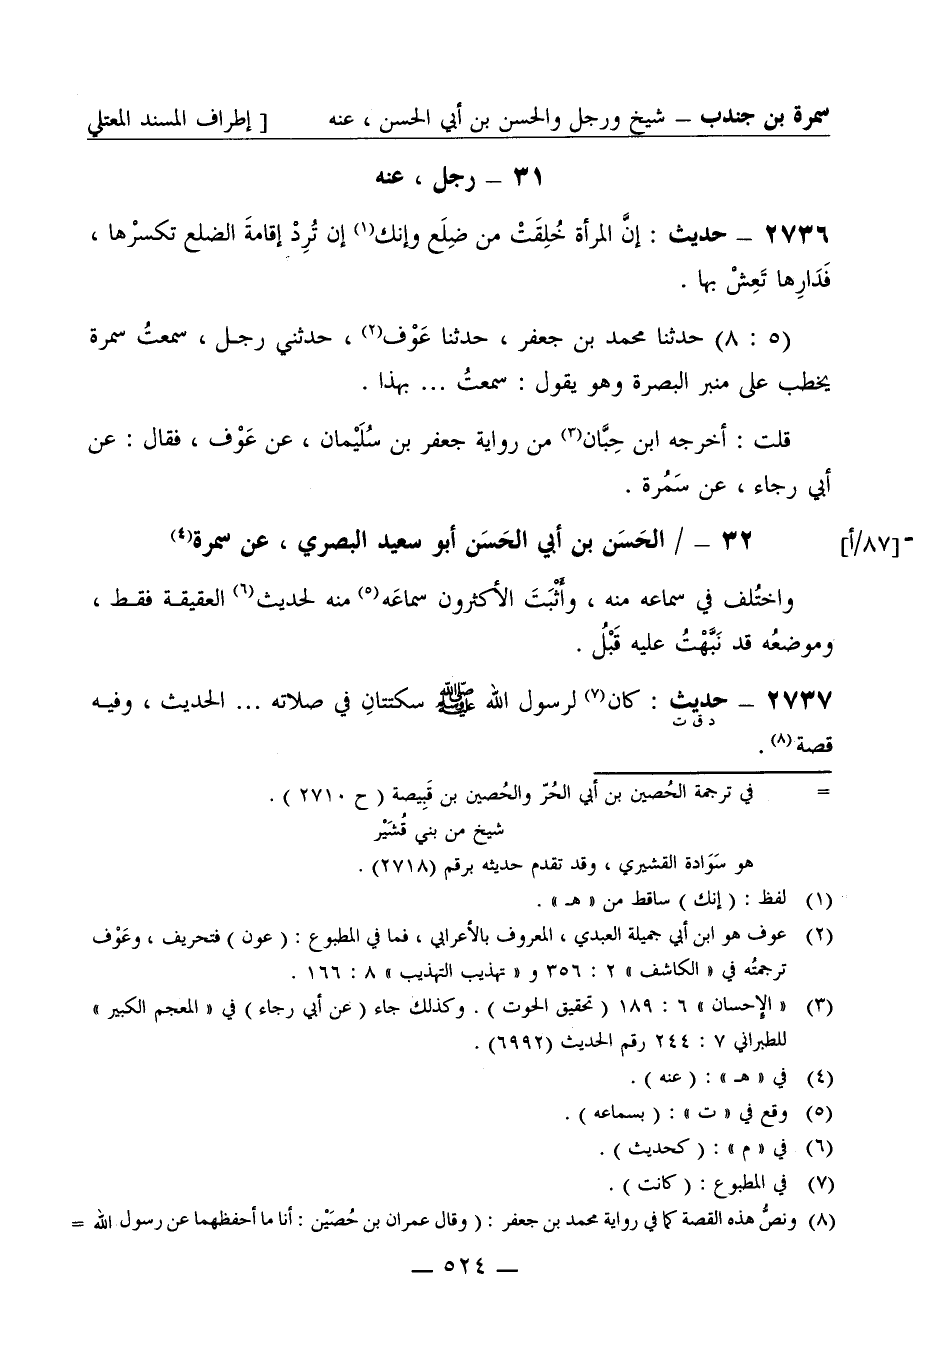 سمرة بن جندب – شيخ ورجل والحسن بن أبي الحسن ، عنه [ إطراف المسند المعتلي
٣١ – رجل ، عنه
٢٧٣٦ – حديث : إنَّ المرأة خُلِقَتْ من ضِلَع وإنك(١) إن تُرِدْ إقامةَ الضلع تكسرْها ،
فَدَارِها تَعِشْ بها .
(٥ : ٨) حدثنا محمد بن جعفر ، حدثنا عَوْف(٢) ، حدثني رجل ، سمعتُ سمرة
يخطب على منبر البصرة وهو يقول : سمعتُ ... بهذا .
قلت : أخرجه ابن حِبَّان(٣) من رواية جعفر بن سُلَيْمان ، عن عَوْف ، فقال : عن
أبي رجاء ، عن سَمُرة .
-[٨٧/أ] ٣٢ – / الحَسَن بن أبي الحَسَن أبو سعيد البصري ، عن سمرة(٤)
واختُلف في سماعه منه ، وأَثْبَتَ الأكثرون سماعَه(٥) منه لحديث(٦) العقيقة فقط ،
وموضعُه قد نَبَّهْتُ عليه قَبْلُ .
٢٧٣٧ – حديث : كان(٧) لرسول الله ﷺ سكتتانِ في صلاته ... الحديث ، وفيه
د ق ت
قصة(٨) .
= في ترجمة الحُصين بن أبي الحُرّ والحُصين بن قَبِيصة ( ح ٢٧١٠ ) .
شيخ من بني قُشَيْر
هو سَوَادة القشيري ، وقد تقدم حديثه برقم (٢٧١٨) .
(١) لفظ : ( إنك ) ساقط من « هـ » .
(٢) عوف هو ابن أبي جميلة العبدي ، المعروف بالأعرابي ، فما في المطبوع : ( عون ) فتحريف ، وعَوْف
ترجمتُه في « الكاشف » ٢ : ٣٥٦ و « تهذيب التهذيب » ٨ : ١٦٦ .
(٣) « الإحسان » ٦ : ١٨٩ ( تحقيق الحوت ) . وكذلك جاء ( عن أبي رجاء ) في « المعجم الكبير »
للطبراني ٧ : ٢٤٤ رقم الحديث (٦٩٩٢) .
(٤) في « هـ » : ( عنه ) .
(٥) وقع في « ت » : ( بسماعه ) .
(٦) في « م » : ( كحديث ) .
(٧) في المطبوع : ( كانت ) .
(٨) ونصُّ هذه القصة كما في رواية محمد بن جعفر : ( وقال عمران بن حُصَيْن : أنا ما أحفظهما عن رسول الله =
— ٥٢٤ —